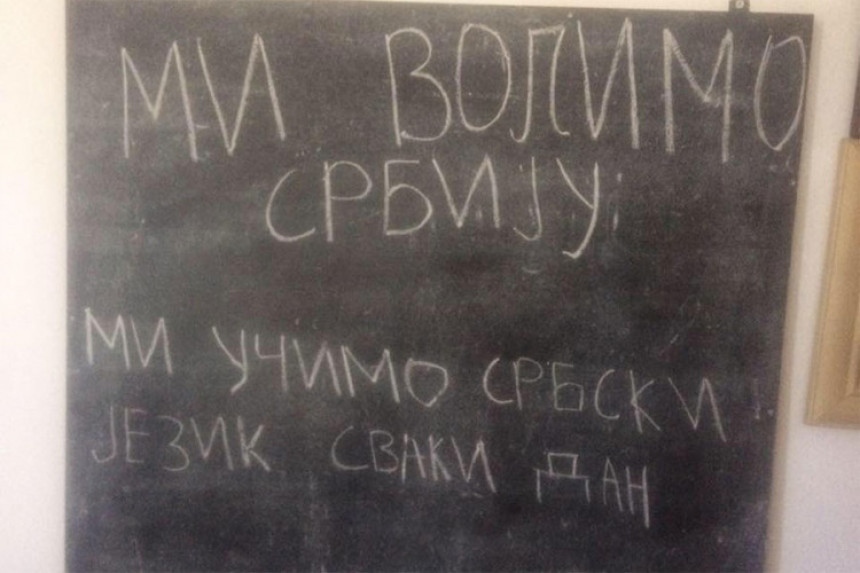 МИ ВОЛИМО
СРБИЈУ
МИ УЧИМО СРБСКИ
ЈЕЗИК СВАКИ ДАН